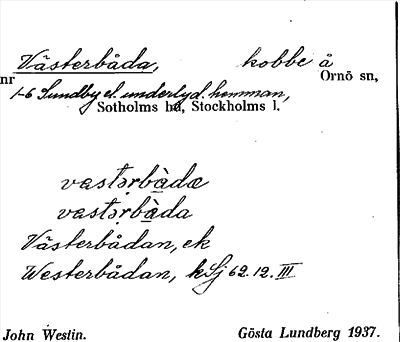 Västerbåda, kobbe å
nr Ornö sn,
1-6 Sundby el. underlyd. hemman,
Sotholms hd, Stockholms l.
vastərbàdæ
vastərbàda
Västerbådan, ek
Westerbådan, kSj 62.12. III
John Westin. Gösta Lundberg 1937.